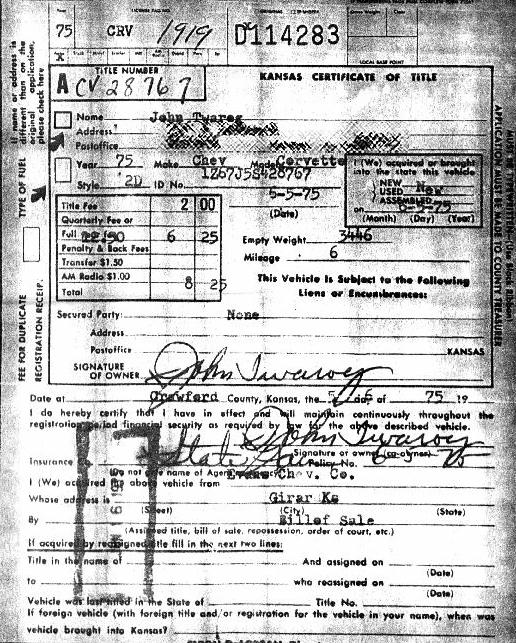 75
CRV
1919
D114283
LOCAL BASE POINT
TITLE NUMBER
A CV 28767
KANSAS CERTIFICATE OF TITLE
If name or address is different than on the original application, please check here
TYPE OF FUEL
FEE FOR DUPLICATE REGISTRATION RECEIPT.
APPLICATION MUST BE MADE TO COUNTY TREASURER
Name John
Address
Postoffice
Year 75 Make Chev Model Corvette
1Z67J5S428767
Style 2D ID No.
5-5-75
(Date)
I (We) acquired or brought
into the state this vehicle
NEW
USED New
ASSEMBLED
on 5-5-75
(Month) (Day) (Year)
Title Fee 2 00
Quarterly Fee or
Full 22.50 6 25
Penalty & Back Fees
Transfer $1.50
AM Radio $1.00
Total 8 25
Empty Weight 3446
Mileage 6
This Vehicle Is Subject to the Following
Liens or Encumbrances:
Secured Party: None
Address
Postoffice KANSAS
SIGNATURE
OF OWNER John
Date at Crawford County, Kansas, the 5/6 day of 75 19
I do hereby certify that I have in effect and will maintain continuously throughout the
registration period financial security as required by law for the above described vehicle.
John
Signature or owner (co-owner)
Insurance State
Policy No.
Do not give name of Agency
I (We) acquired the above vehicle from Evans Chev. Co.
Whose address is Girar Ks
(Street) (City) (State)
By Billof Sale
(Assigned title, bill of sale, repossession, order of court, etc.)
If acquired by reassigned title fill in the next two lines:
Title in the name of And assigned on
(Date)
to who reassigned on
(Date)
Vehicle was last titled in the State of Title No.
If foreign vehicle (with foreign title and/or registration for the vehicle in your name), when was
vehicle brought into Kansas?